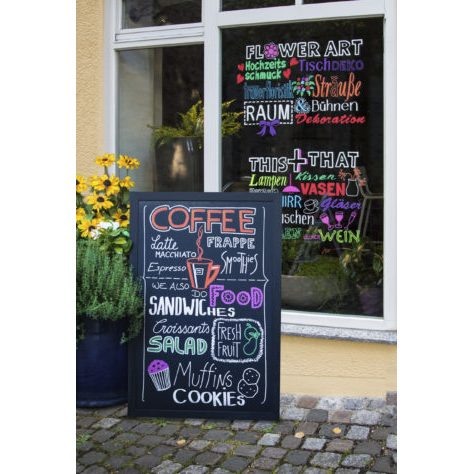 FLOWER ART
Hochzeits
schmuck
TischDEKO
Trauerfloristik
Sträuße
RAUM & Bühnen
Dekoration
THIS + THAT
Lampen
Kissen
VASEN
IRR
Gläser
schen
WEIN
COFFEE
Latte
MACCHIATO
FRAPPE
Espresso
Smoothies
WE ALSO
DO
FOOD
SANDWICHES
Croissants
SALAD
FRESH
FRUIT
Muffins
COOKIES